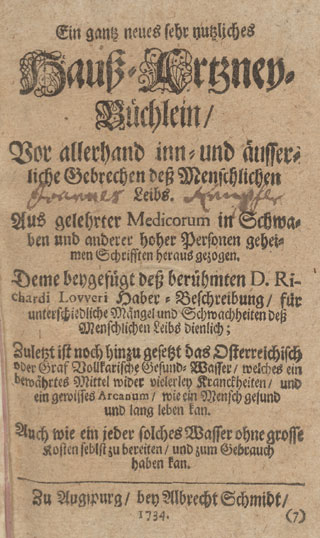 Ein gantz neues sehr nutzliches
Hauß-Artzney-
Büchlein/
Vor allerhand inn- und äusser-
liche Gebrechen deß Menschlichen
Joannes Leibs.
Aus gelehrter Medicorum in Schwa-
ben und anderer hoher Personen gehei-
men Schrifften heraus gezogen.
Deme beygefügt deß berühmten D. Ri-
chardi Lovveri Haber-Beschreibung/ für
unterschiedliche Mängel und Schwachheiten deß
Menschlichen Leibs dienlich;
Zuletzt ist noch hinzu gesetzt das Osterreichisch
oder Graf Volkarische Gesund-Wasser/ welches ein
bewährtes Mittel wider vielerley Kranckheiten/ und
ein gewisses Arcanum/ wie ein Mensch gesund
und lang leben kan.
Auch wie ein jeder solches Wasser ohne grosse
Kosten seblst zu bereiten/ und zum Gebrauch
haben kan.
Zu Augspurg/ bey Albrecht Schmidt/
1734. (7)